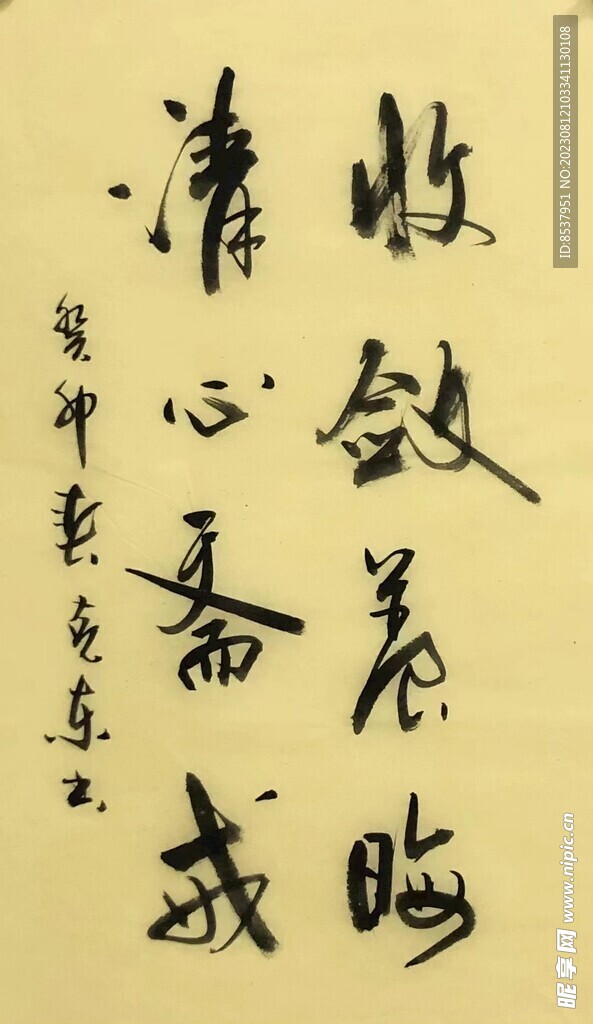 收敛養晦
清心斋戒
癸卯克东书
ID:8537951 NO:20230812103341130108
昵享网 www.nipic.cn